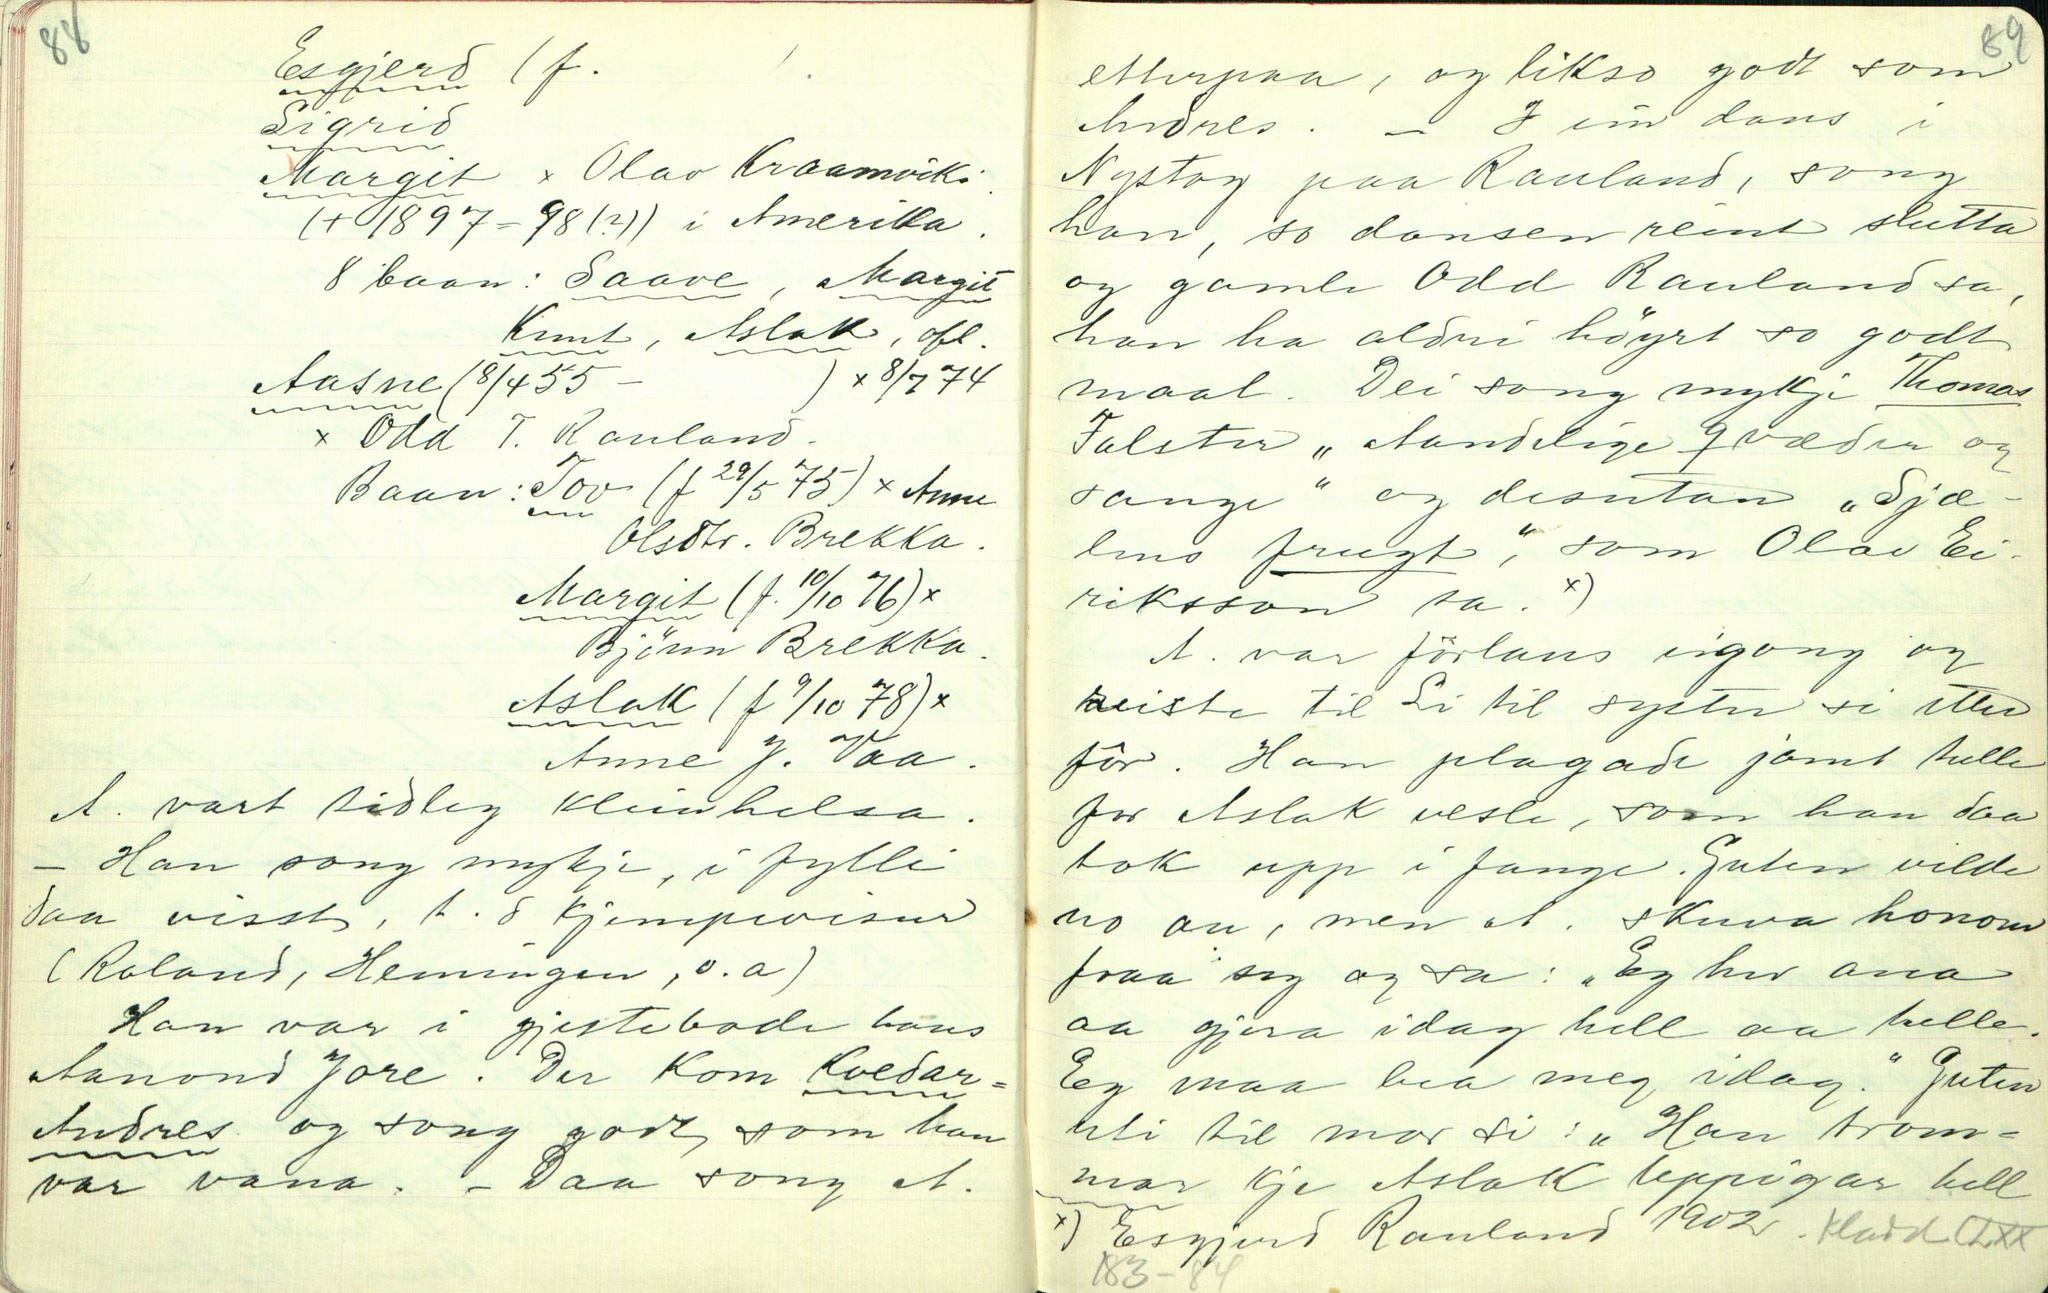 88
Esgjerd (f. ).
Sigrid
Margit × Olav Kraamviki.
(+ 1897-98(?)) i Amerika.
8 baan: Saave, Margit
Knut, Aslak, ofl.
Aasne (8/4 55 - ) × 8/7 74
× Odd T. Rauland.
Baan: Tov (f 29/5 75) × Anne
Olsdtr. Brekka.
Margit (f. 10/10 76) ×
Björn Brekka.
Aslak (f 9/10 78) ×
Anne J. Vaa.
A. vart tidleg kleinhelsa.
- Han song mykje, i fylli
daa visst, t. d kjempevisur
(Roland, Hemingen, o. a)
Han var i gjestebode hans
Aanond Jore. Der kom Kvedar-
Andres og song godt, som han
var vana. - Daa song A.
89
etterpaa, og likso godt som
Andres. - I ein dans i
Nystog paa Rauland, song
han, so dansen reint slutta
og gamle Odd Rauland sa,
han ha aldri höyrt so godt
maal. Dei song mykje Thomas
Falster „Aandelige qvæder og
sange" og desutan „Sjæ-
lens frugt", som Olav Ei-
riksson sa. x)
A. var förlaus eigong og
reiste til Li til syster si etter
fôr. Han plagade jamt tulle
for Aslak vesle, som han daa
tok upp i fange. Guten vilde
no au, men A. skuva honom
fraa seg og sa: „Eg hev ana
aa gjera idag hell aa tulle.
Eg maa bea meg idag." Guten
uti til mor si: „Han trom-
mar kje Aslak teppigar hell
x) Esgjerd Rauland 1902. Kladd CLXX
183-84